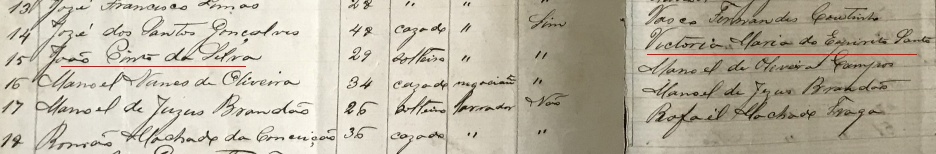 13 José Francisco 28 " " Vasco Fernandes Coutinho
14 José dos Santos Gonçalves 48 cazado " Sim Victoria Maria do Espirito Santo
15 João Pinto da Silva 29 solteiro " " Manoel de Oliveira Campos
16 Manoel Nunes de Oliveira 34 cazado negociante " Manoel de Jezus Brandão
17 Manoel de Juzus Brandão 26 solteiro lavrador Não Rafael Machado Fraga
18 Romão Machado da Conceição 36 cazado " "